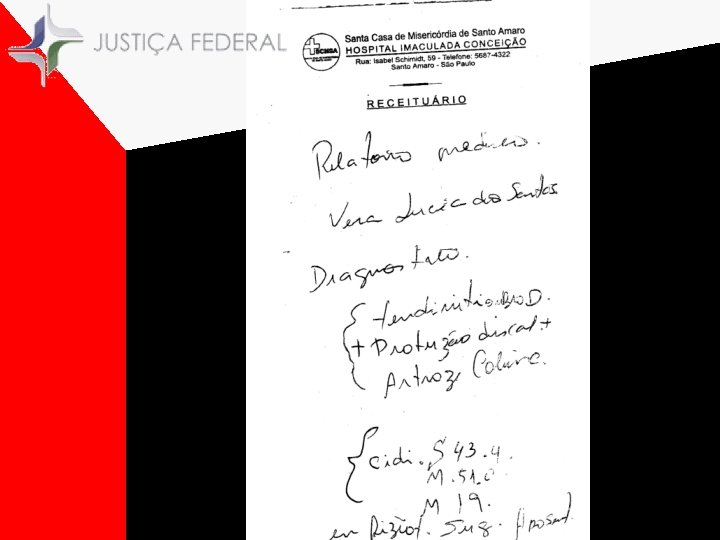 JUSTIÇA FEDERAL
Santa Casa de Misericórdia de Santo Amaro
HOSPITAL IMACULADA CONCEIÇÃO
Rua: Isabel Schimidt, 59 - Telefone: 5687-4322
Santo Amaro - São Paulo
RECEITUÁRIO
Relatorio medico.
Vera Lucia dos Santos
Diagnostico.
tendinite D.
+ Protuzão discal +
Artroze Coluna.
cidi. S 43.4.
M.51.0
M 19.
em fiziot. Sug. Aposent.